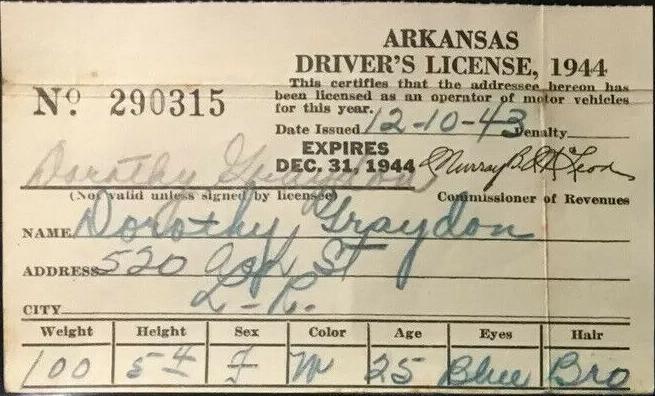 ARKANSAS
DRIVER'S LICENSE, 1944
This certifies that the addressee hereon has
been licensed as an operator of motor vehicles
for this year.
No. 290315
Date Issued 12-10-43 Penalty
EXPIRES
DEC. 31, 1944
Dorothy Graydon
(Not valid unless signed by licensee) Commissioner of Revenues
NAME Dorothy Graydon
ADDRESS 520 St
L-R.
CITY
Weight Height Sex Color Age Eyes Hair
100 5 4 F W 25 Blue Bro